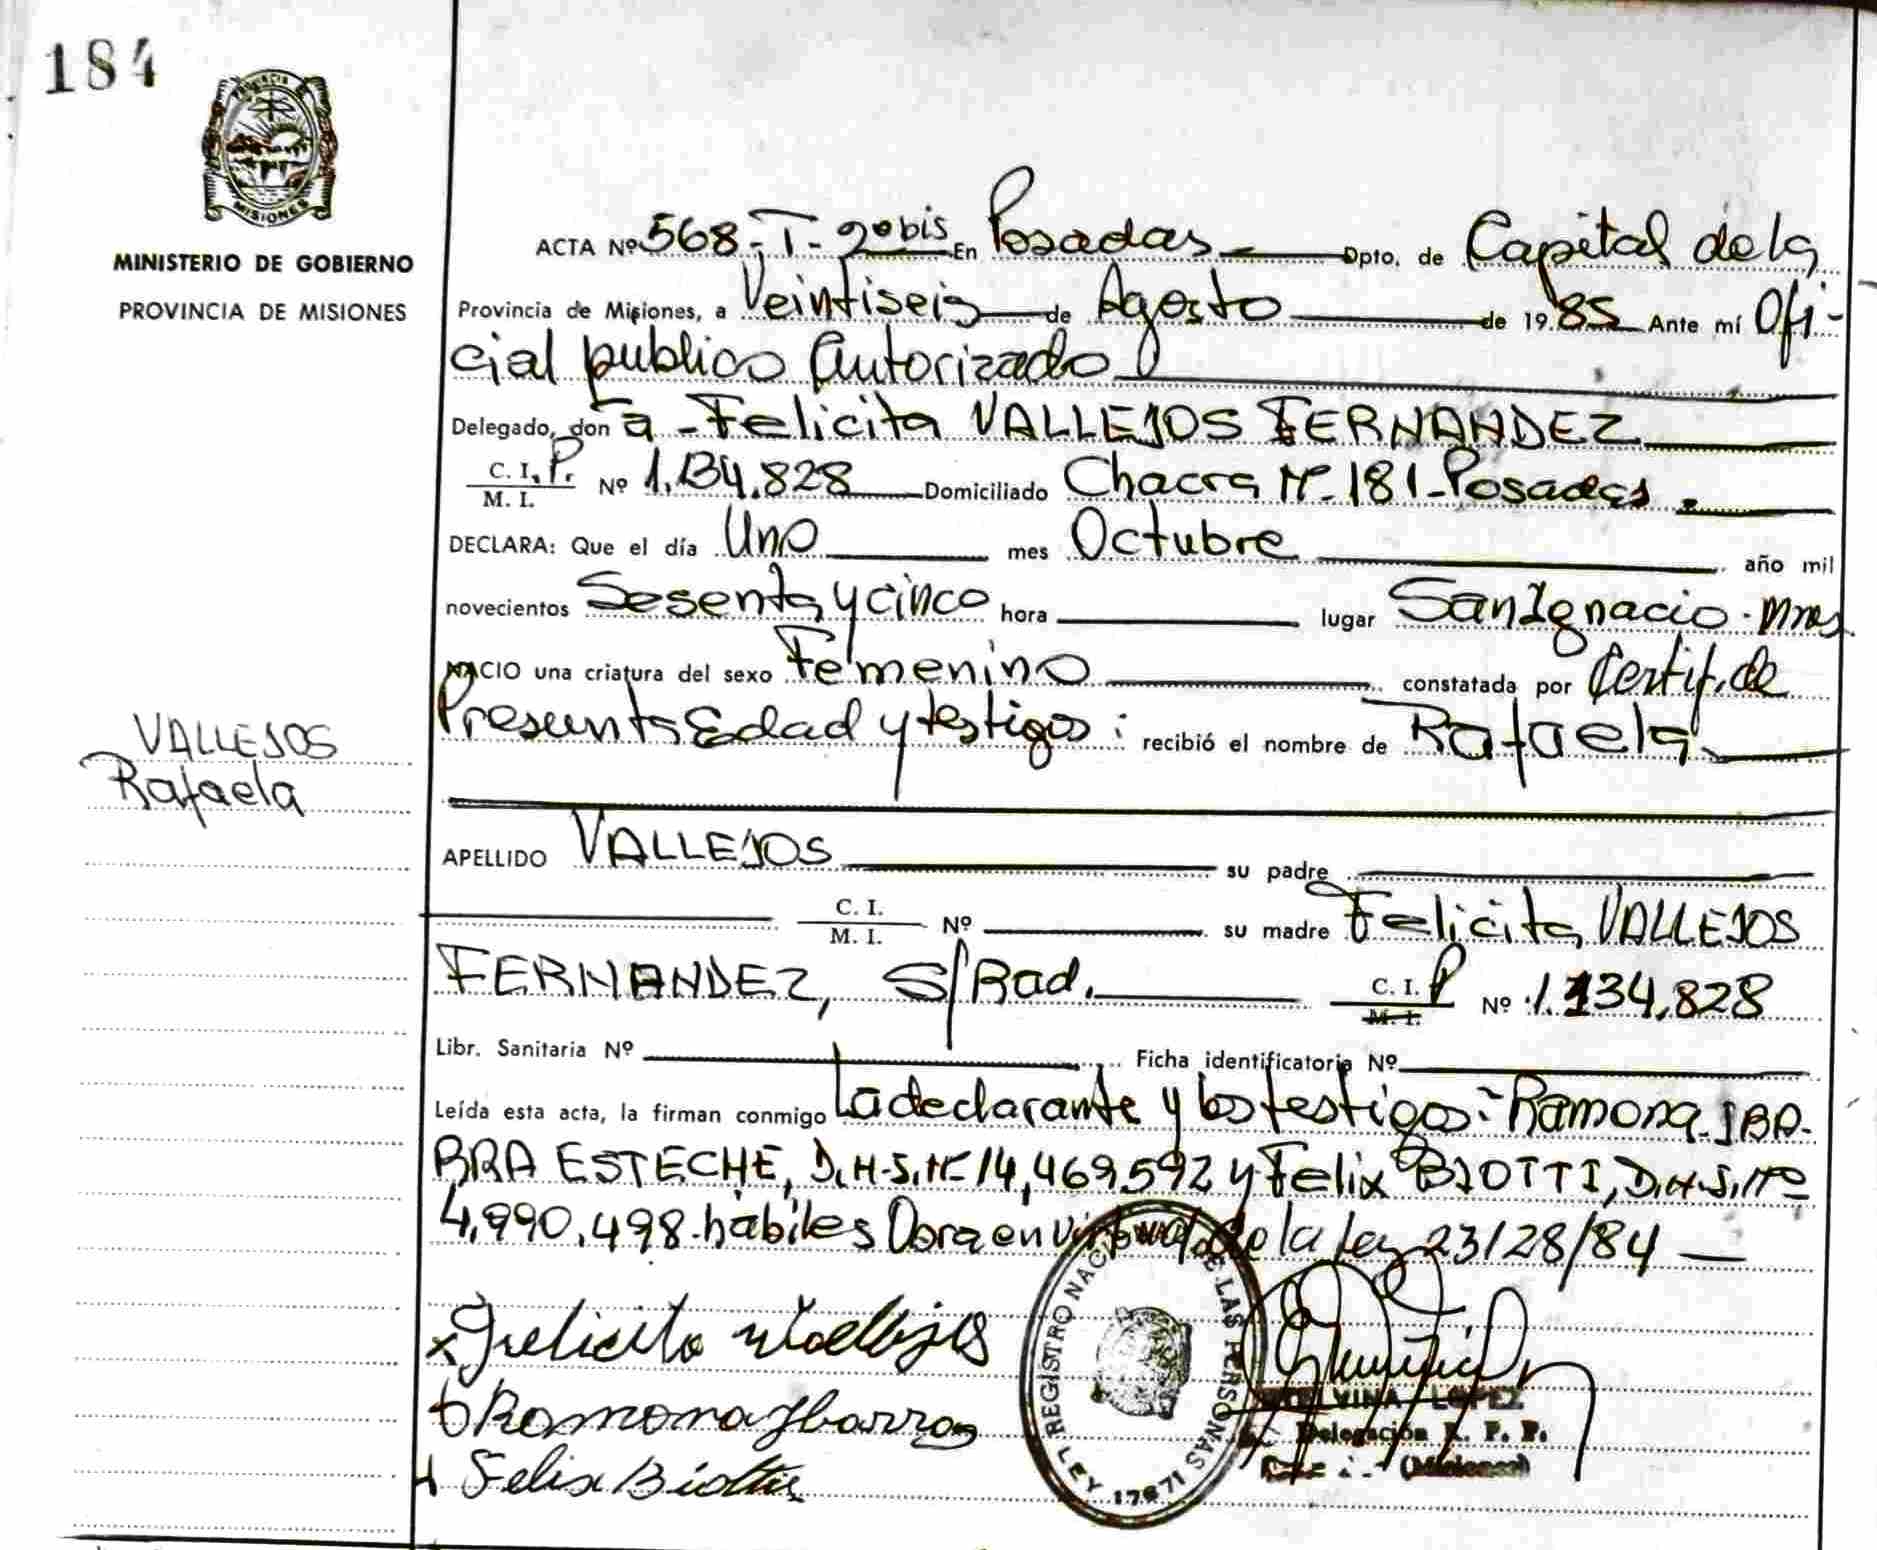 184
PROVINCIA DE
MISIONES
MINISTERIO DE GOBIERNO
PROVINCIA DE MISIONES
VALLEJOS
Rafaela
ACTA Nº 568-T-2º bis En Posadas Dpto. de Capital de la
Provincia de Misiones, a Veintiseis de Agosto de 1985 Ante mí Ofi-
cial publico Autorizado
Delegado, don a - Felicita VALLEJOS FERNANDEZ
C. I. P. / M. I. Nº 1.134.828 Domiciliado Chacra Nº-181-Posadas.
DECLARA: Que el día Uno mes Octubre año mil
novecientos Sesenta y cinco hora lugar San Ignacio-Mnes
NACIO una criatura del sexo Femenino constatada por Certif. de
Presunta Edad y testigos: recibió el nombre de Rafaela
APELLIDO VALLEJOS su padre
C. I. / M. I. Nº su madre Felicita VALLEJOS
FERNANDEZ, S/Rad. C. I. P / M. I. Nº 1.134,828
Libr. Sanitaria Nº Ficha identificatoria Nº
Leída esta acta, la firman conmigo La declarante y los testigos:- Ramona IBA-
RRA ESTECHE, D.N-I.Nº 14,469.592 y Felix BIOTTI, D.N.I.Nº
4,990.498-habiles Obra en virtud de la ley 23/28/84
x Felicita Vallejos
Ramona Ibarra
Felix Biotti
REGISTRO NACIONAL DE LAS PERSONAS
LEY 17671
LOPEZ
Delegación R. P. P.
(Misiones)